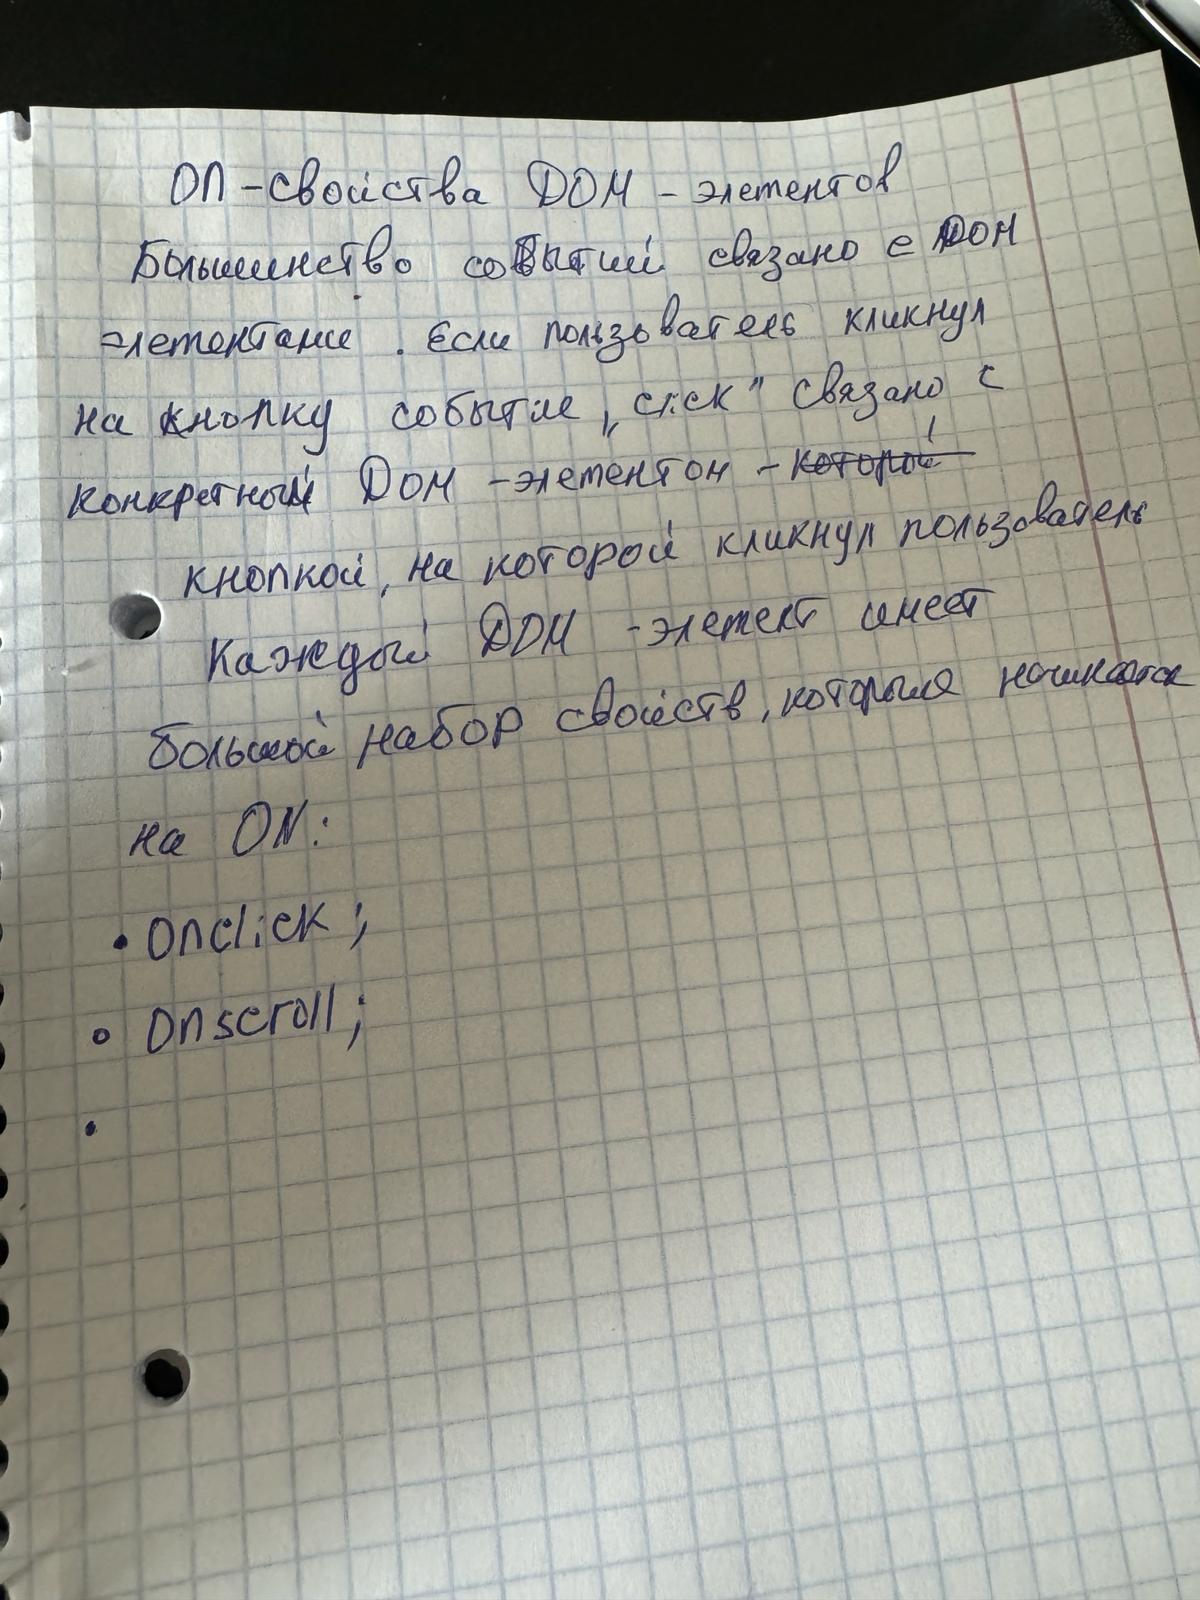 ОП - свойства DОМ - элементов
Большинство событий связано с DОМ
элементами . Если пользователь кликнул
на кнопку событие „click" связано с
конкретный DОМ - элементом - которой
кнопкой, на которой кликнул пользователь
Каждый DОМ - элемент имеет
большой набор свойств, которые начинаются
на ON:
• Onclick ;
• Onscroll ;
•